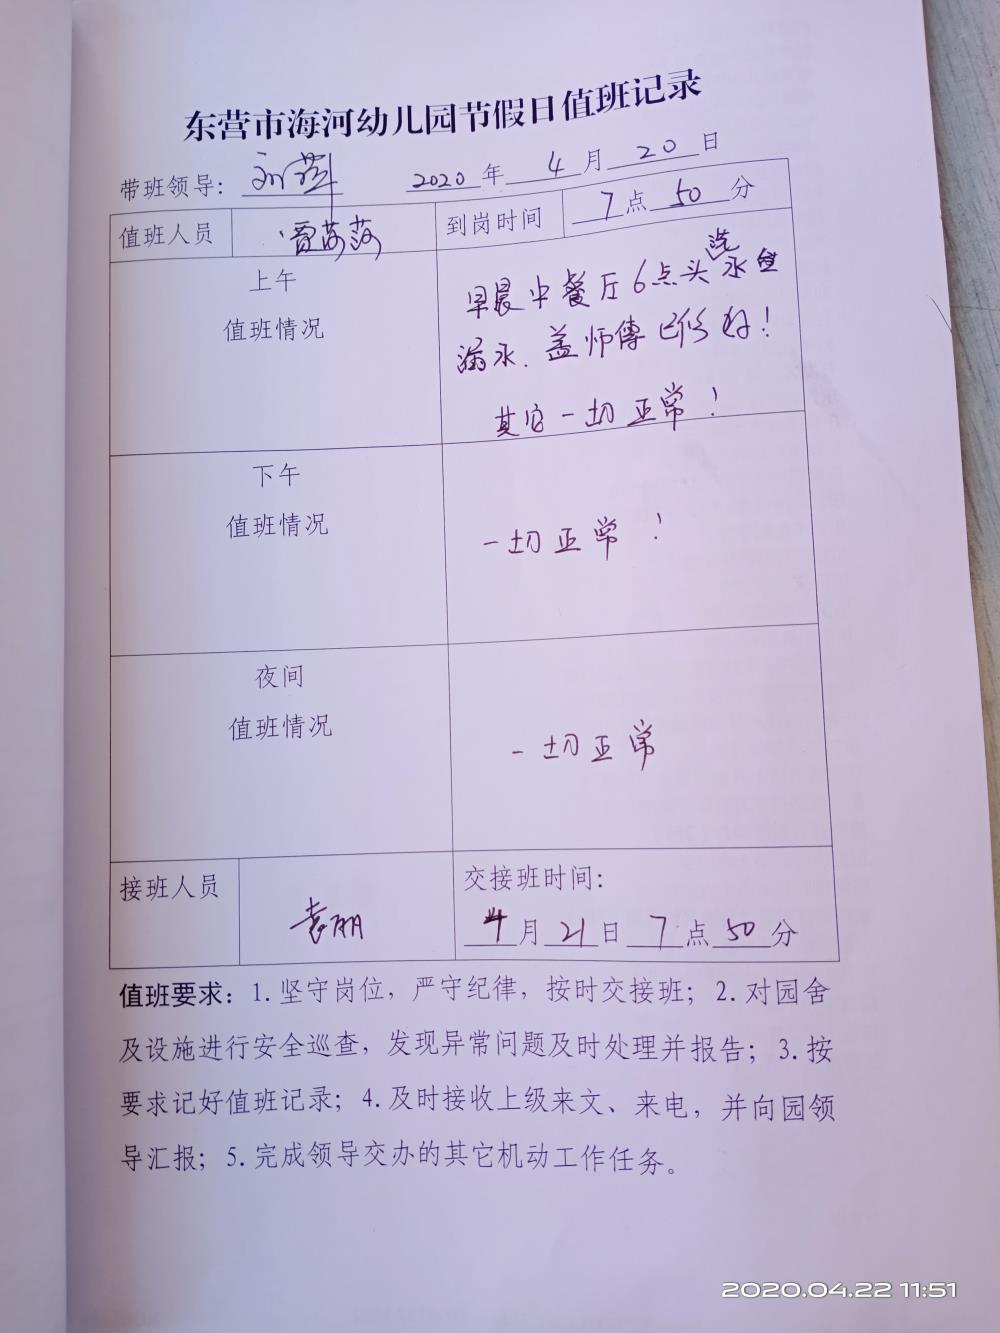 东营市海河幼儿园节假日值班记录
带班领导： 刘萍 2020 年 4 月 20 日
值班人员 贾莎莎 到岗时间 7 点 50 分
上午
值班情况
早晨中餐厅6点头洗水盆
漏水. 盖师傅已修好！
其它一切正常！
下午
值班情况
一切正常！
夜间
值班情况
一切正常
接班人员 袁丽 交接班时间：
4 月 21 日 7 点 50 分
值班要求：1. 坚守岗位，严守纪律，按时交接班；2. 对园舍
及设施进行安全巡查，发现异常问题及时处理并报告；3. 按
要求记好值班记录；4. 及时接收上级来文、来电，并向园领
导汇报；5. 完成领导交办的其它机动工作任务。
2020.04.22 11:51